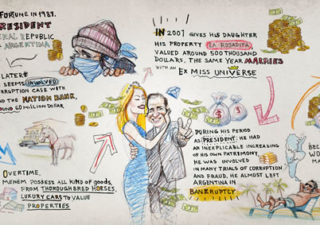 FORTUNE IN 1989.
PRESIDENT
ERAL REPUBLIC
ARGENTINA
LATER
SEEMS INVOLVED
ORRUPTION CASE WITH
THE NATION BANK,
60 MILLION DOLLAR.
OVERTIME,
MENEM POSSESS ALL KIND OF GOODS,
FROM THOROUGHBRED HORSES,
LUXURY CARS TO VALUE
PROPERTIES
IN 2007 GIVES HIS DAUGHTER
HIS PROPERTY "LA ROSADITA"
VALUED AROUND 500 THOUSAND
DOLLARS, THE SAME YEAR MARRIES
WITH AN EX MISS UNIVERSE
DURING HIS PERIOD
AS PRESIDENT, HE HAD
AN INEXPLICABLE INCREASING
OF HIS OWN PATREMONY
HE WAS INVOLVED
IN MANY TRIALS OF CORRUPTION
AND FRAUD, HE ALMOST LEFT
ARGENTINA IN
BANKRUPTCY
BEC
WO
MA